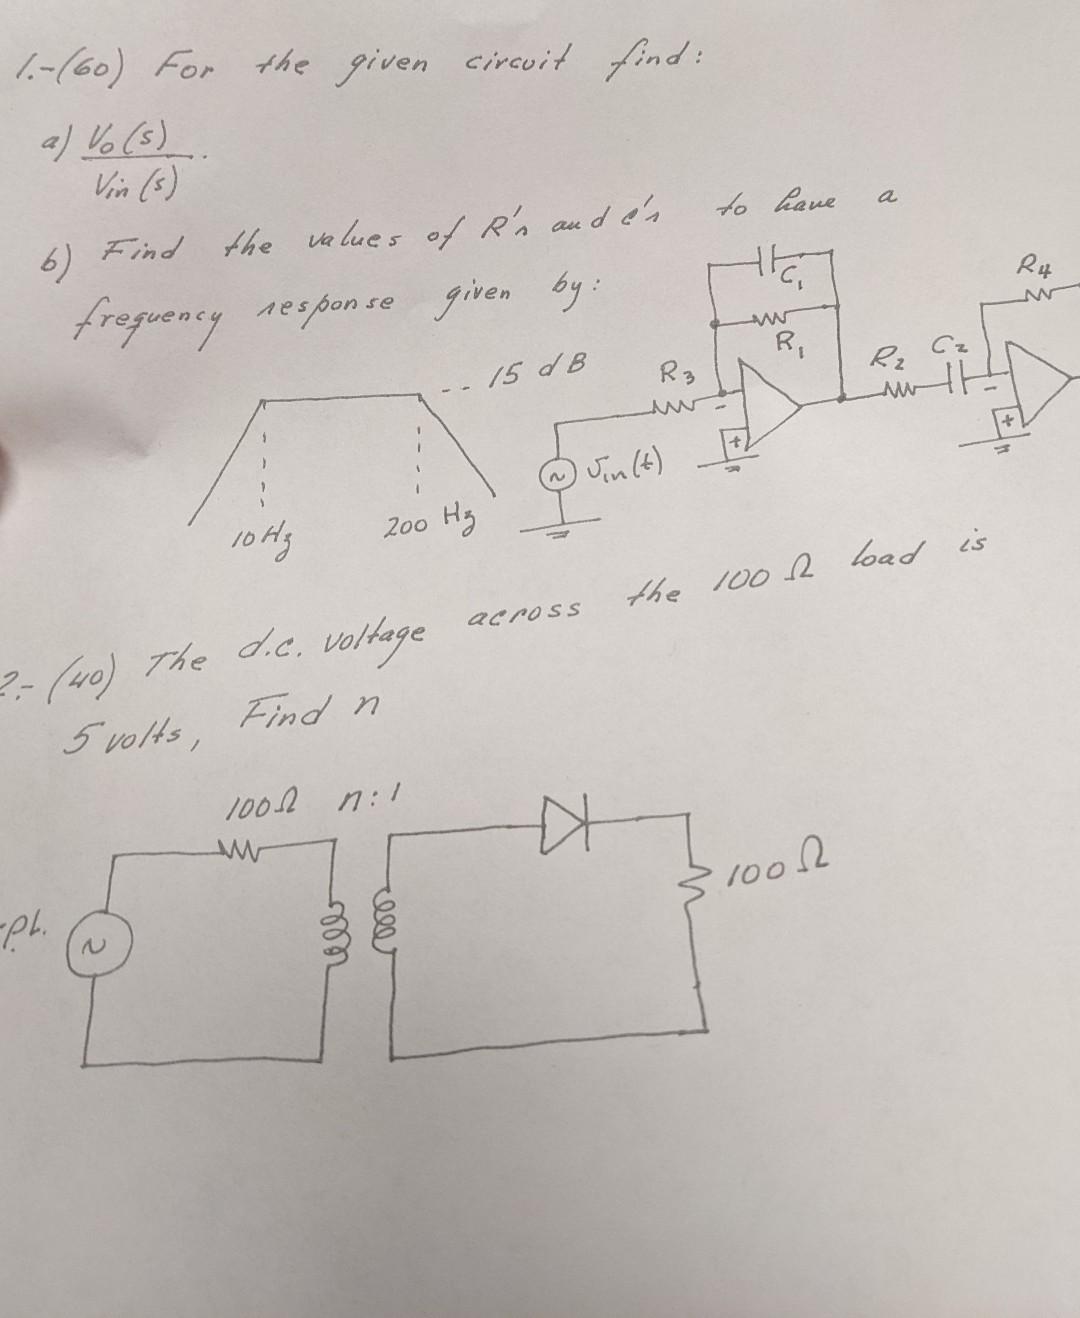 1.-(60) For the given circuit find:
a) Vo(s)
Vin(s)
b) Find the values of R's and C's to have a
frequency response given by:
C1
R4
R1
15 dB
R3
R2
C2
-
-
+
+
Vin(t)
10 Hz
200 Hz
2.- (40) The d.c. voltage across the 100 Ω load is
5 volts, Find n
100Ω n:1
100 Ω